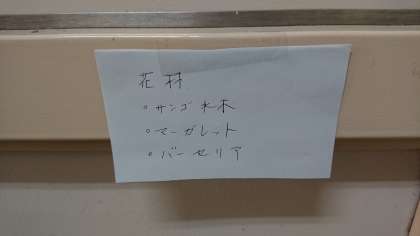 花材
○サンゴ水木
○マーガレット
○バーセリア